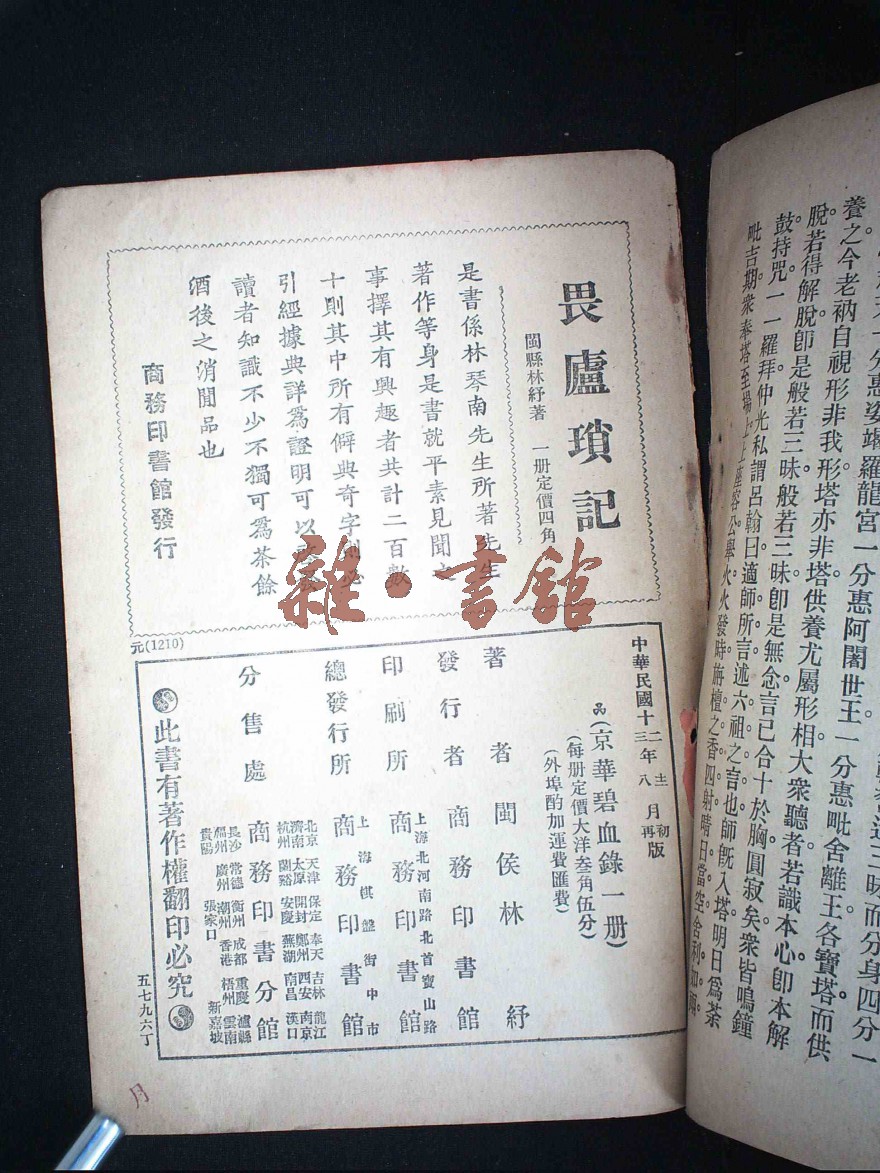 養之今老衲自視形非我形塔亦非塔供養尤屬形相大衆聽者若識本心卽本解
脫若得解脫卽是般若三昧般若三昧卽是無念言已合十於胸圓寂矣衆皆鳴鐘
鼓持咒一一羅拜仲光私謂呂翰曰適師所言述六祖之言也師旣入塔明日爲荼
毗吉期衆奉塔至場上上座容公舉火火發時旃檀之香四射晴日當空舍利如
畏廬瑣記
閩縣林紓著 一册定價四角
是書係林琴南先生所著先生
著作等身是書就平素見聞之
事擇其有興趣者共計二百數
十則其中所有僻典奇字
引經據典詳爲證明可以
讀者知識不少不獨可爲茶餘
酒後之消閒品也
商務印書館發行
元(1210)
中華民國十二年十二月初版
中華民國十三年八月再版
(京華碧血錄一册)
(每册定價大洋叁角伍分)
(外埠酌加運費匯費)
著者 閩侯林紓
發行者 商務印書館
印刷所 上海北河南路北首寶山路 商務印書館
總發行所 上海棋盤街中市 商務印書館
分售處 商務印書分館
北京 天津 保定 奉天 吉林 龍江
濟南 太原 開封 鄭州 西安 南京
杭州 蘭谿 安慶 蕪湖 南昌 漢口
長沙 常德 衡州 成都 重慶 瀘縣
福州 廣州 潮州 香港 梧州 雲南
貴陽 張家口 新嘉坡
此書有著作權翻印必究
五七九六丁
月
雜·書館